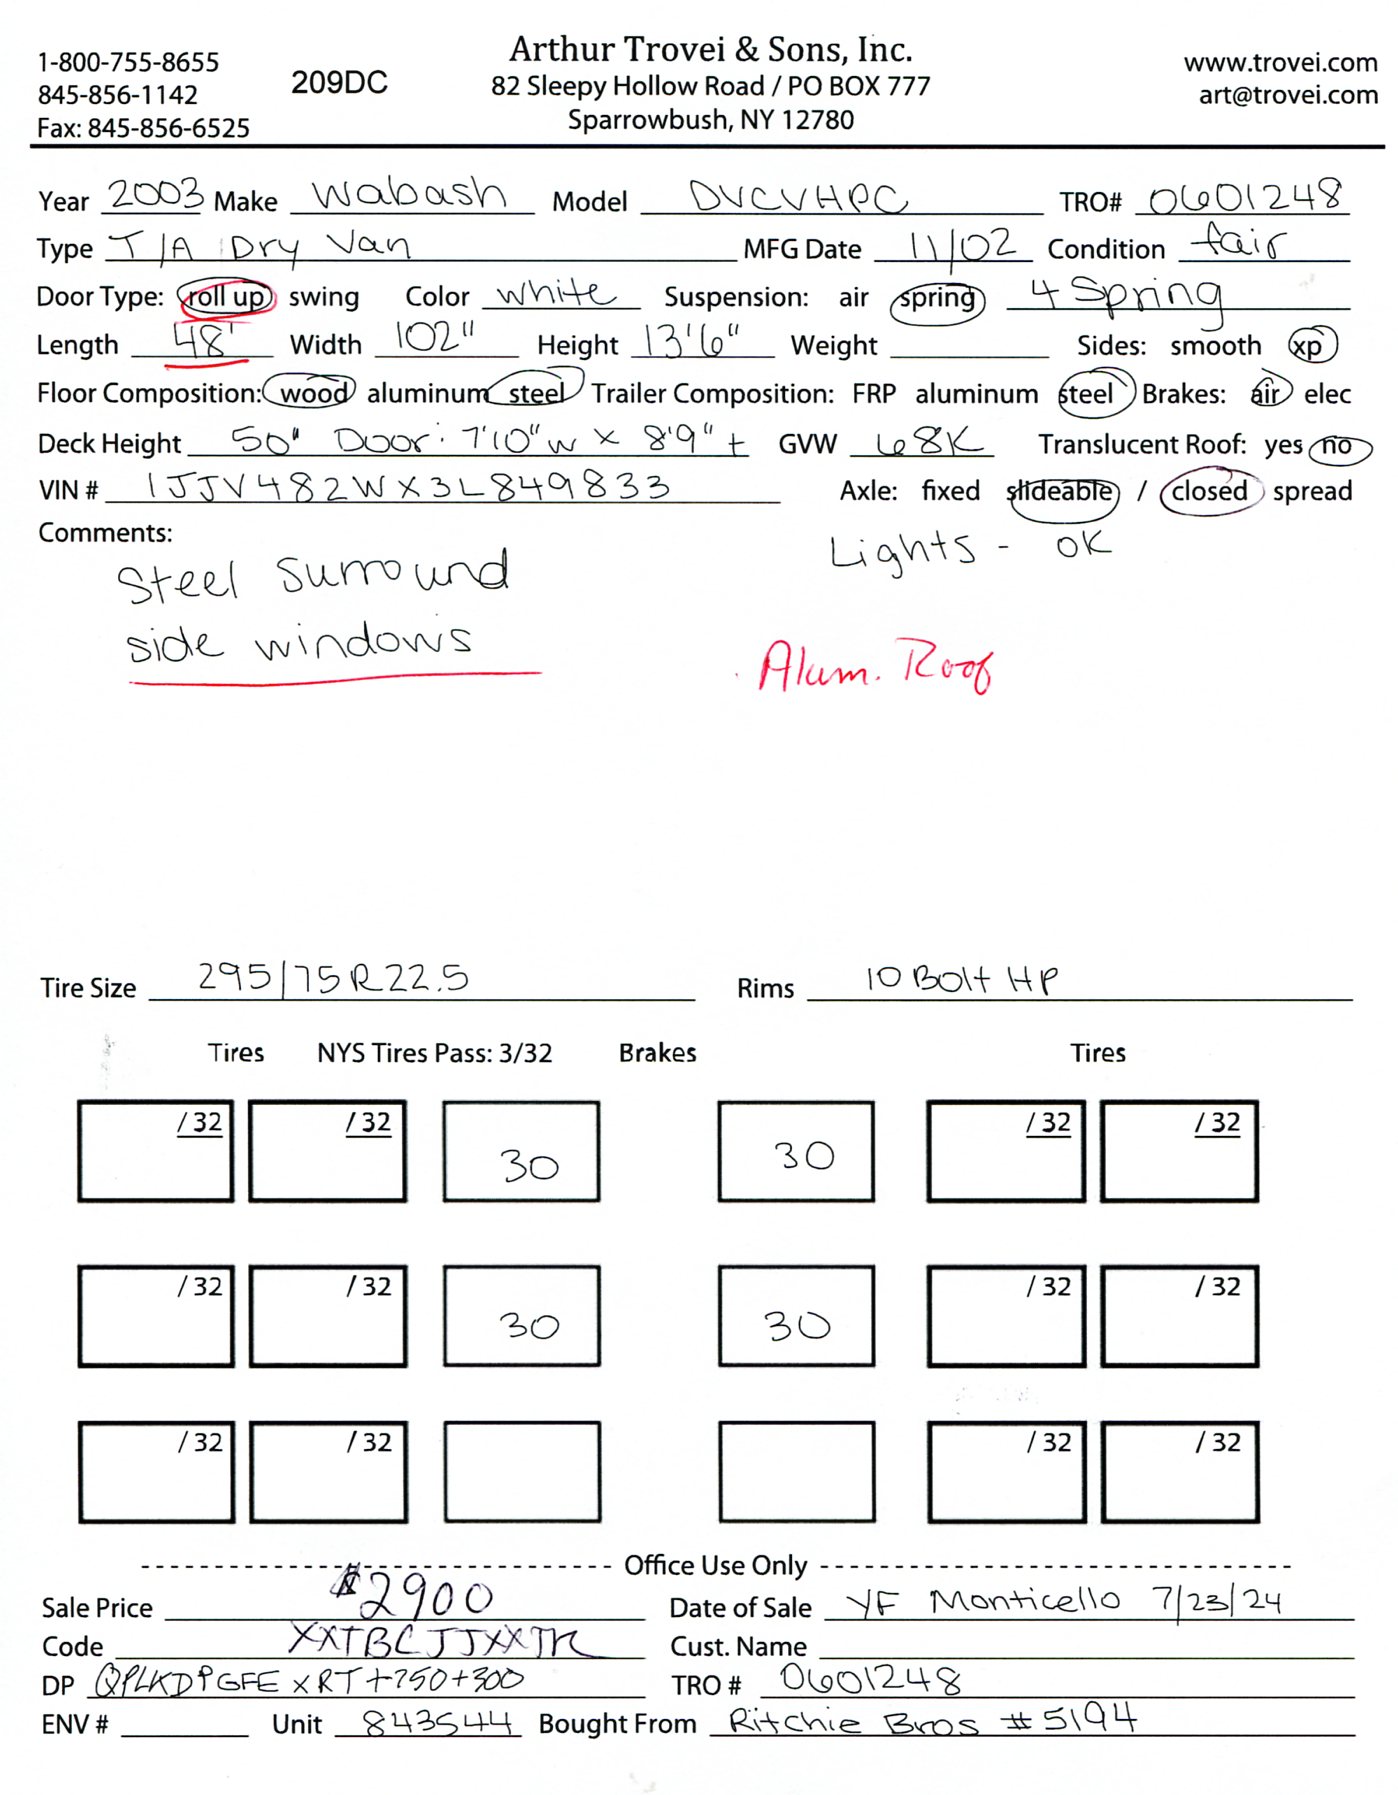 Arthur Trovei & Sons, Inc.
1-800-755-8655
845-856-1142
Fax: 845-856-6525
209DC
82 Sleepy Hollow Road / PO BOX 777
Sparrowbush, NY 12780
www.trovei.com
art@trovei.com
Year 2003 Make Wabash Model DVCVHPC TRO# 0601248
Type T/A Dry Van MFG Date 11/02 Condition fair
Door Type: roll up swing Color white Suspension: air spring 4 Spring
Length 48' Width 102" Height 13'6" Weight Sides: smooth xp
Floor Composition: wood aluminum steel Trailer Composition: FRP aluminum steel Brakes: air elec
Deck Height 50" Door: 7'10"w x 8'9"t GVW 68K Translucent Roof: yes no
VIN # 1JJV482WX3L849833 Axle: fixed slideable / closed spread
Comments:
Lights - OK
Steel surround
side windows
Alum. Roof
Tire Size 295/75R22.5 Rims 10 Bolt HP
Tires NYS Tires Pass: 3/32 Brakes Tires
/32 /32 30 30 /32 /32
/32 /32 30 30 /32 /32
/32 /32 /32 /32
Office Use Only
Sale Price $2900 Date of Sale YF Monticello 7/23/24
Code Cust. Name
DP +750+300 TRO # 0601248
ENV # Unit 843544 Bought From Ritchie Bros #5194